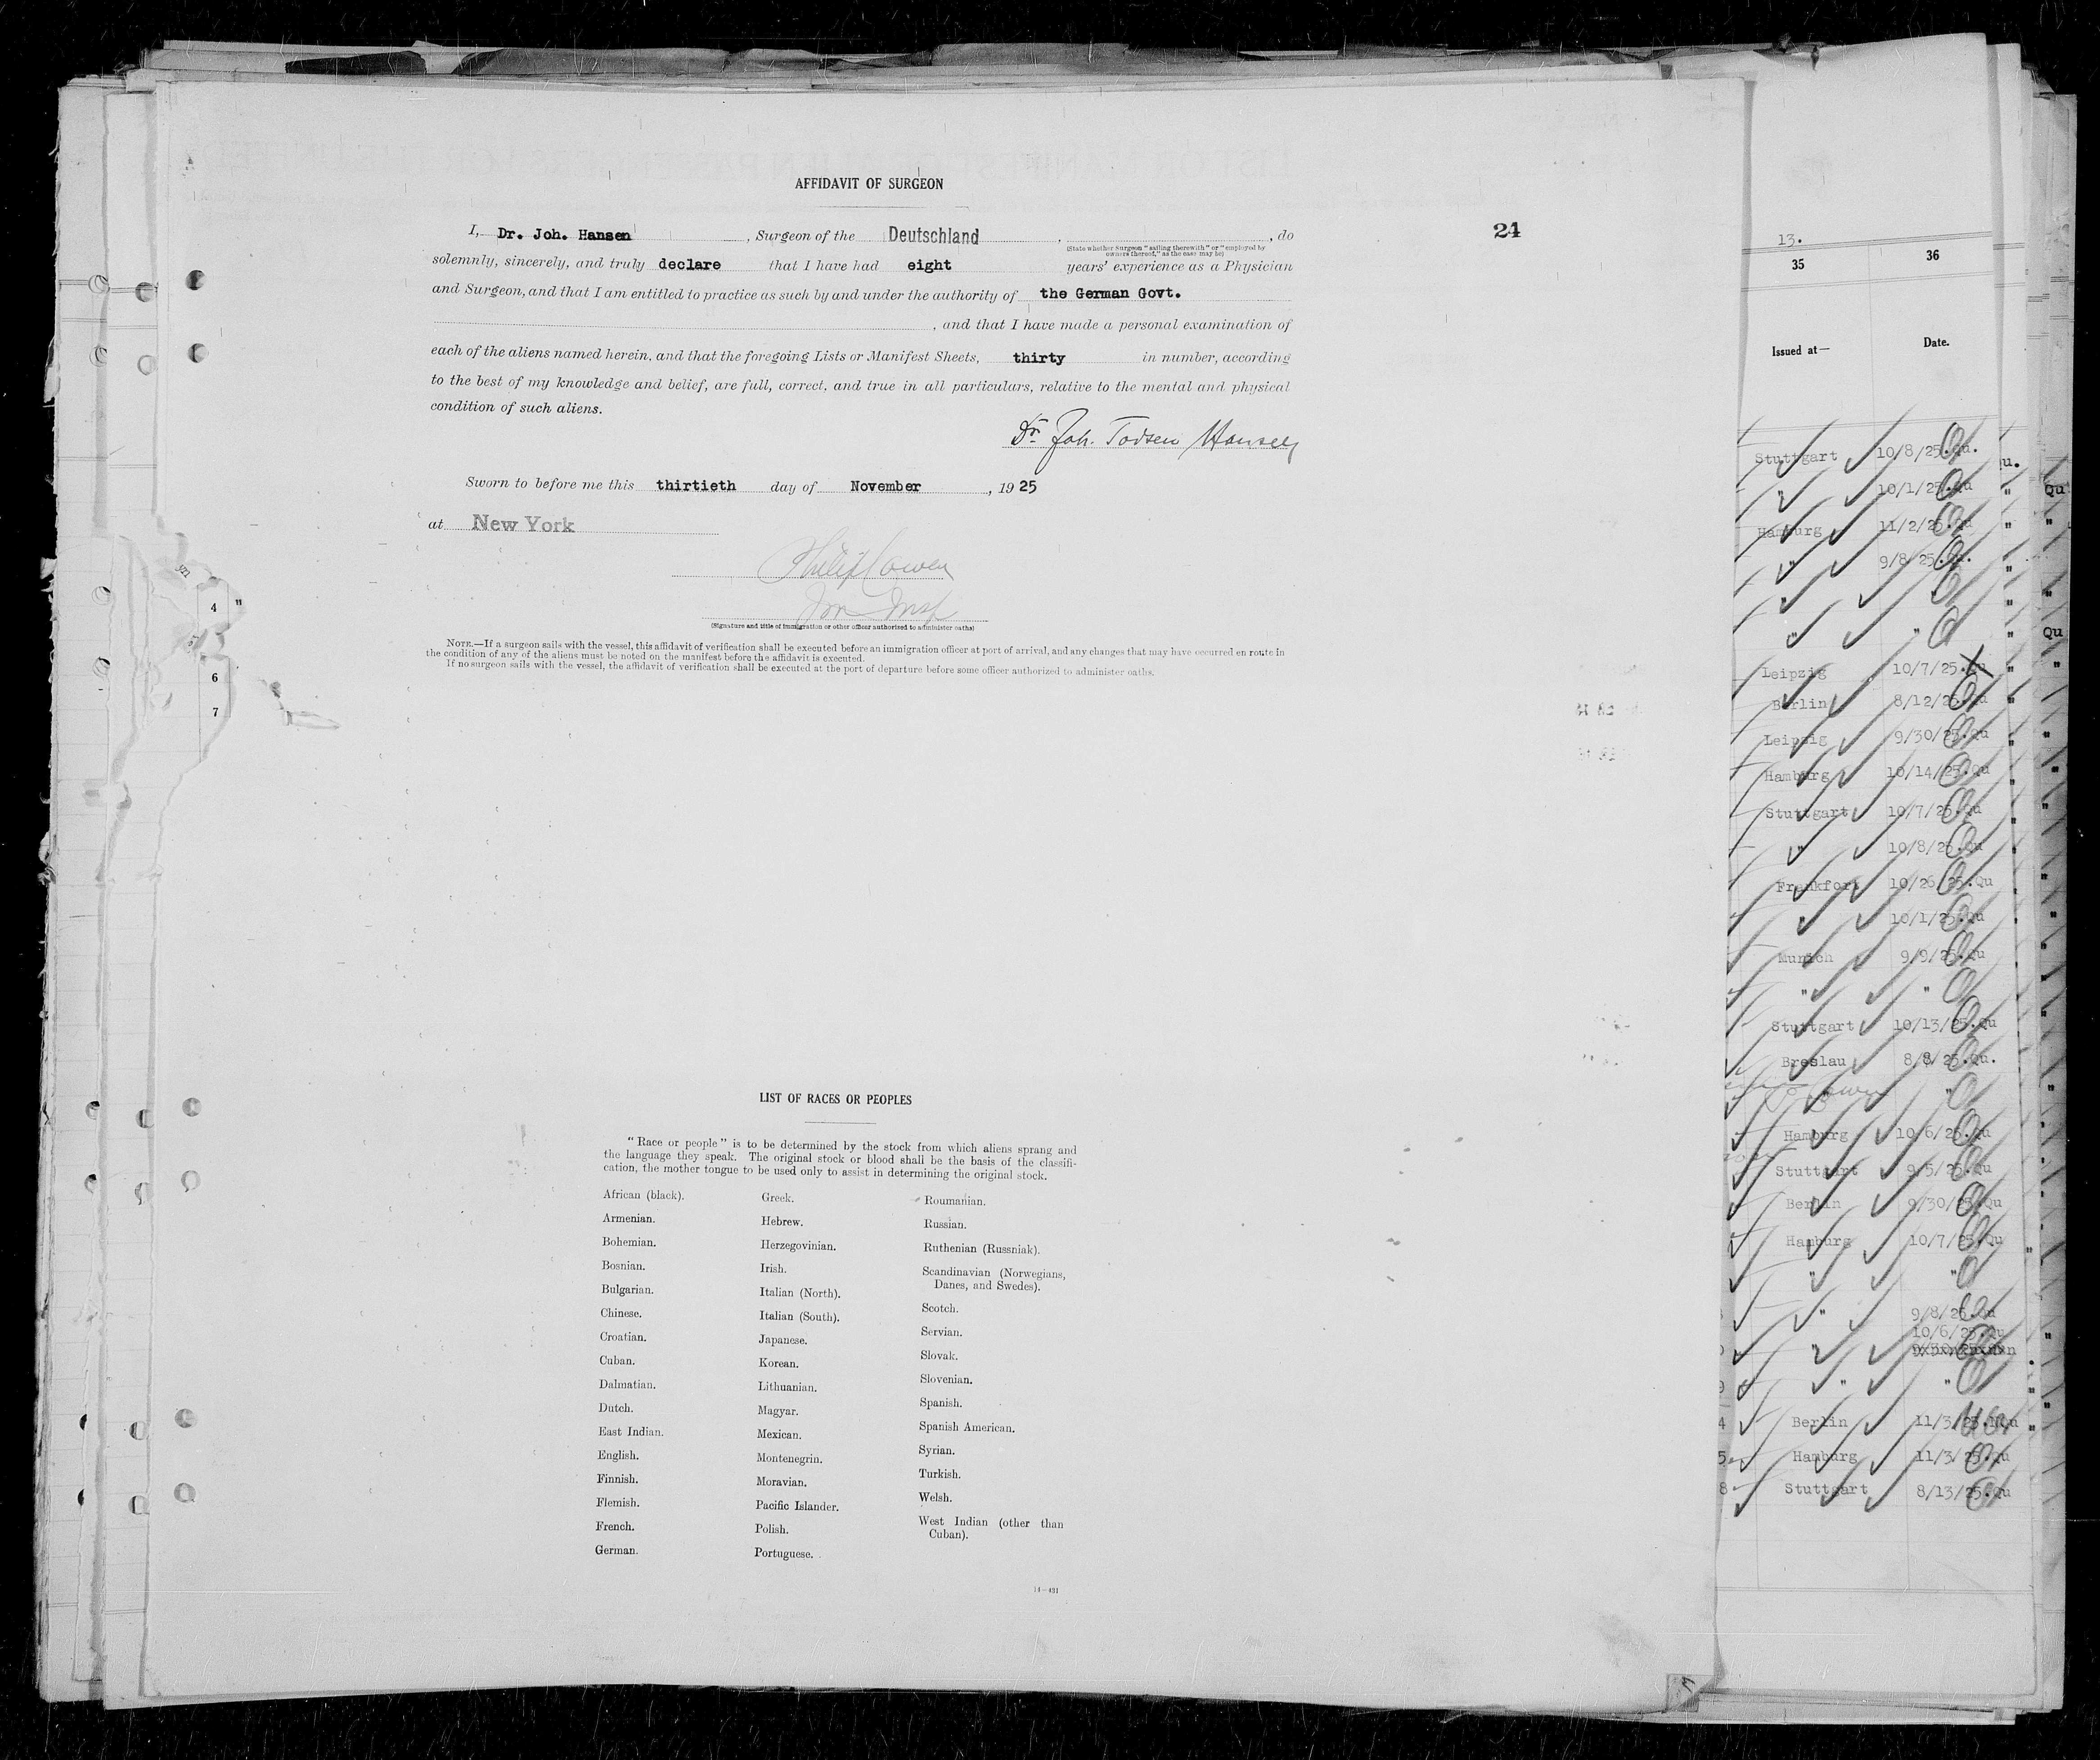 AFFIDAVIT OF SURGEON
24
I, Dr. Joh. Hansen , Surgeon of the Deutschland , , do
(State whether Surgeon "sailing therewith" or "employed by
owners thereof," as the case may be)
solemnly, sincerely, and truly declare that I have had eight years' experience as a Physician
and Surgeon, and that I am entitled to practice as such by and under the authority of the German Govt.
, and that I have made a personal examination of
each of the aliens named herein, and that the foregoing Lists or Manifest Sheets, thirty in number, according
to the best of my knowledge and belief, are full, correct, and true in all particulars, relative to the mental and physical
condition of such aliens.
Dr. Joh. Todsen Hansen
Sworn to before me this thirtieth day of November , 1925
at New York
Philip Cowen
Imm Insp
(Signature and title of immigration or other officer authorized to administer oaths)
NOTE.—If a surgeon sails with the vessel, this affidavit of verification shall be executed before an immigration officer at port of arrival, and any changes that may have occurred en route in
the condition of any of the aliens must be noted on the manifest before the affidavit is executed.
If no surgeon sails with the vessel, the affidavit of verification shall be executed at the port of departure before some officer authorized to administer oaths.
4 "
6
7
LIST OF RACES OR PEOPLES
"Race or people" is to be determined by the stock from which aliens sprang and
the language they speak. The original stock or blood shall be the basis of the classifi-
cation, the mother tongue to be used only to assist in determining the original stock.
African (black).
Armenian.
Bohemian.
Bosnian.
Bulgarian.
Chinese.
Croatian.
Cuban.
Dalmatian.
Dutch.
East Indian.
English.
Finnish.
Flemish.
French.
German.
Greek.
Hebrew.
Herzegovinian.
Irish.
Italian (North).
Italian (South).
Japanese.
Korean.
Lithuanian.
Magyar.
Mexican.
Montenegrin.
Moravian.
Pacific Islander.
Polish.
Portuguese.
Roumanian.
Russian.
Ruthenian (Russniak).
Scandinavian (Norwegians,
Danes, and Swedes).
Scotch.
Servian.
Slovak.
Slovenian.
Spanish.
Spanish American.
Syrian.
Turkish.
Welsh.
West Indian (other than
Cuban).
14—431
13.
35 36
Issued at— Date.
Stuttgart 10/8/25.Qu.
" 10/1/25.Qu
Hamburg 11/2/25.Qu
" 9/8/25.Qu.
" "
Leipzig 10/7/25.Qu
Berlin 8/12/25.Qu
Leipzig 9/30/25.Qu
Hamburg 10/14/25.Qu
Stuttgart 10/7/25.Qu
" 10/8/25.Qu
Frankfort 10/26/25.Qu
" 10/1/25.Qu
Munich 9/9/25.Qu
" "
Stuttgart 10/13/25.Qu
Breslau 8/8/25.Qu.
"
Hamburg 10/6/25.Qu
Stuttgart 9/5/25.Qu
Berlin 9/30/25.Qu
Hamburg 10/7/25.Qu
" "
" 9/8/25.Qu
" 10/6/25.Qu
" "
Berlin 11/3/25.NQu
Hamburg 11/3/25.Qu
Stuttgart 8/13/25.Qu